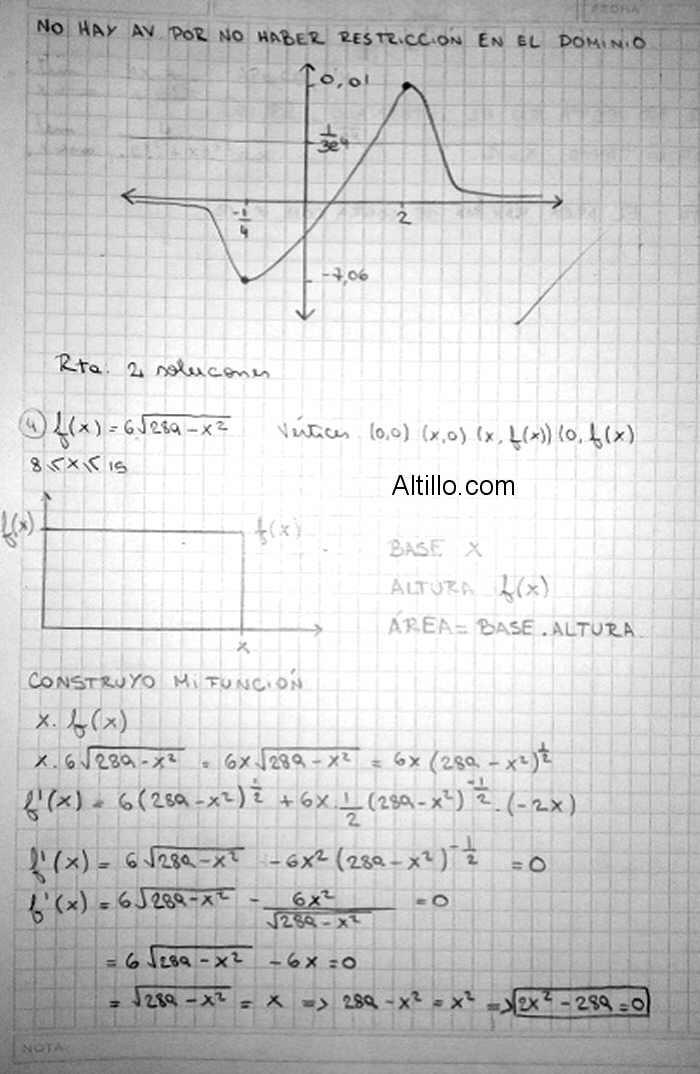 FECHA
NO HAY AV POR NO HABER RESTRICCIÓN EN EL DOMINIO
0,01
1/3e⁴
-1/4
2
-7,06
Rta. 2 soluciones
4) f(x) = 6√289-x² Vértices (0,0) (x,0) (x, f(x)) (0, f(x)
8 ≤ x ≤ 15
Altillo.com
f(x)
f(x)
BASE X
ALTURA f(x)
ÁREA = BASE . ALTURA
x
CONSTRUYO MI FUNCIÓN
x. f(x)
x. 6√289-x² = 6x√289-x² = 6x (289-x²)^1/2
f'(x) = 6(289-x²)^1/2 + 6x.1/2 (289-x²)^-1/2 . (-2x)
f'(x) = 6√289-x² - 6x² (289-x²)^-1/2 = 0
f'(x) = 6√289-x² - 6x²/√289-x² = 0
= 6√289-x² - 6x = 0
= √289-x² = x => 289-x² = x² => 2x² - 289 = 0
NOTA